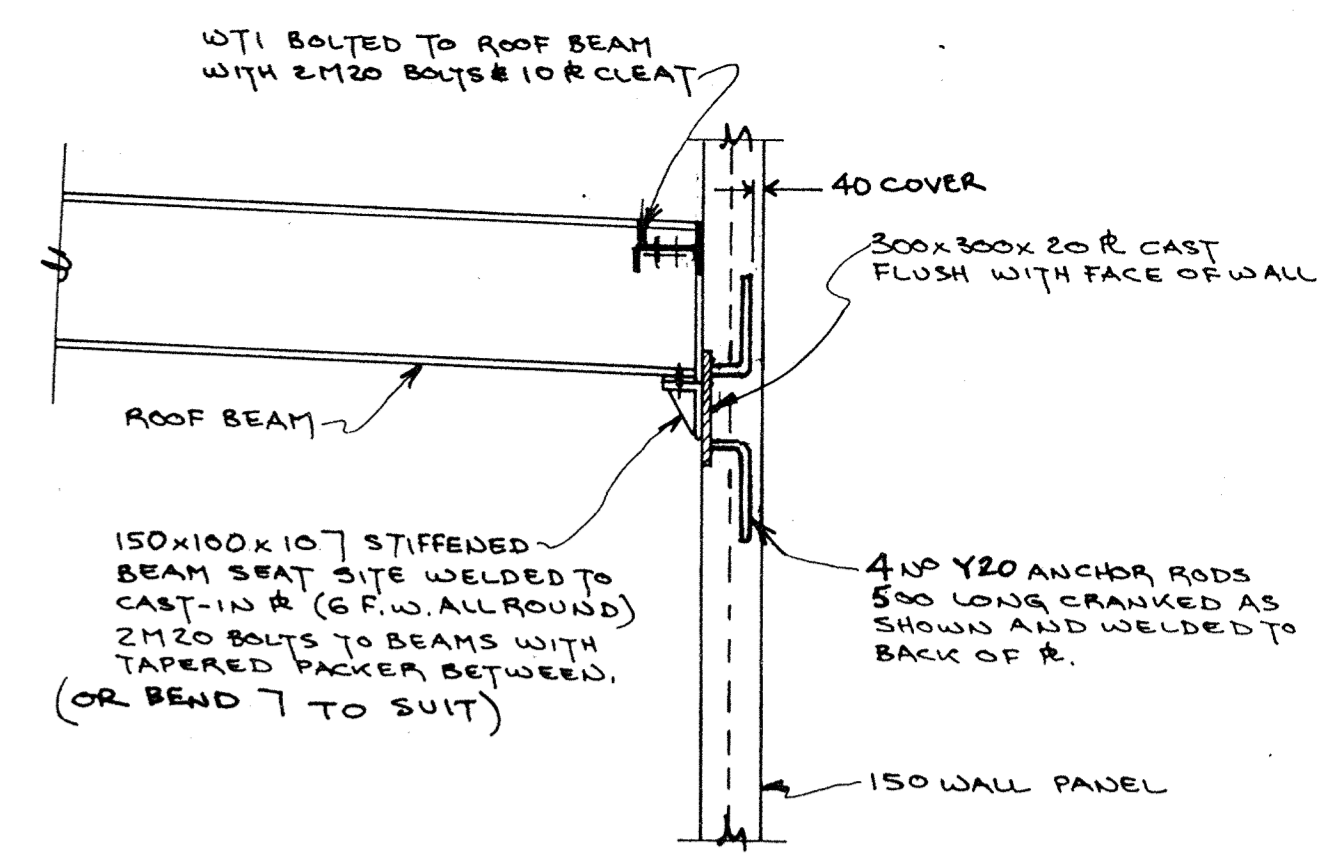 WT1 BOLTED TO ROOF BEAM
WITH 2M20 BOLTS & 10 ⅊ CLEAT
40 COVER
300x300x20 ⅊ CAST
FLUSH WITH FACE OF WALL
ROOF BEAM
150x100x10 ㄱ STIFFENED
BEAM SEAT SITE WELDED TO
CAST-IN ⅊ (6 F.W. ALL ROUND)
2M20 BOLTS TO BEAMS WITH
TAPERED PACKER BETWEEN.
(OR BEND ㄱ TO SUIT)
4 NO Y20 ANCHOR RODS
500 LONG CRANKED AS
SHOWN AND WELDED TO
BACK OF ⅊.
150 WALL PANEL